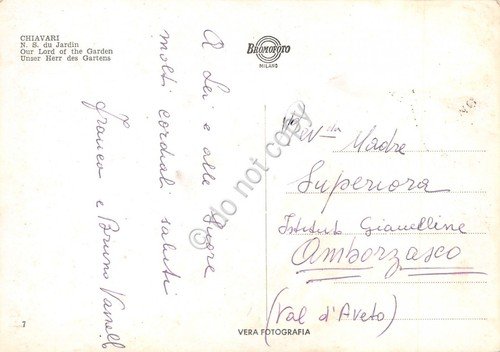 CHIAVARI
N. S. du Jardin
Our Lord of the Garden
Unser Herr des Gartens
BROMOFOTO
MILANO
A Lei e alle Suore
molti cordiali saluti
Franca e Bruno
Rev ma Madre
Superiora
Istituto Gianelline
Amborzasco
(Val d'Aveto)
do not copy
7
VERA FOTOGRAFIA